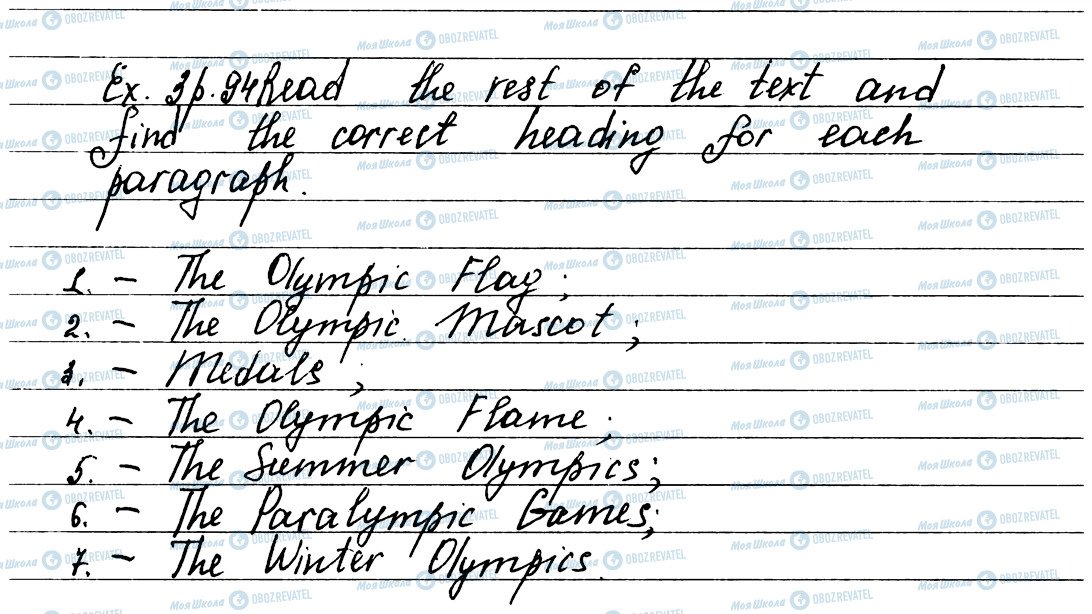 Ex. 3p.94Read the rest of the text and
find the correct heading for each
paragraph.
1. – The Olympic Flag;
2. – The Olympic Mascot;
3. – Medals;
4. – The Olympic Flame;
5. – The Summer Olympics;
6. – The Paralympic Games;
7. – The Winter Olympics.